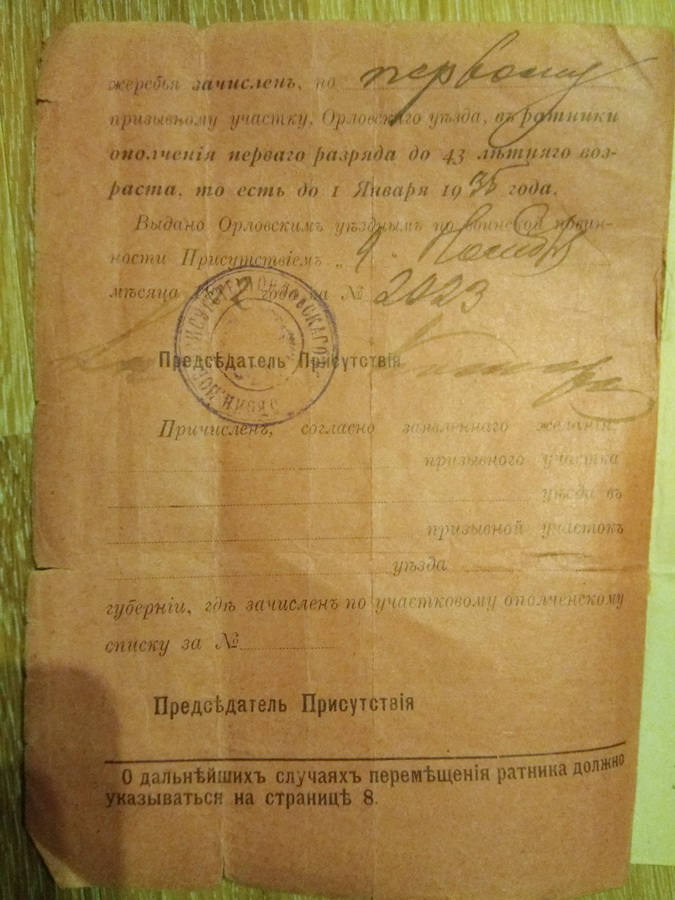 жеребья зачисленъ, по первому
призывному участку, Орловскаго уѣзда, въ ратники
ополченія перваго разряда до 43 лѣтняго воз-
раста, то есть до 1 Января 1935 года.
Выдано Орловскимъ уѣзднымъ по воинской повин-
ности Присутствіемъ „ 9 “
мѣсяца 2 года за № 2023
Предсѣдатель Присутствія
Причисленъ, согласно заявленнаго желанія,
призывного участка
уѣзда въ
призывной участокъ
уѣзда
губерніи, гдѣ зачисленъ по участковому ополченскому
списку за №
Предсѣдатель Присутствія
О дальнѣйшихъ случаяхъ перемѣщенія ратника должно
указываться на страницѣ 8.